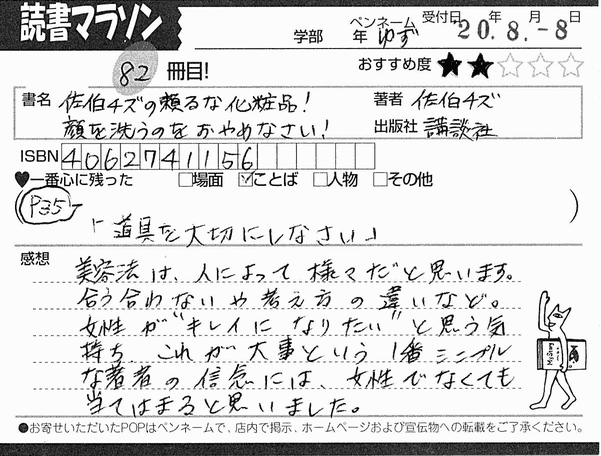 読書マラソン
学部 年 ペンネーム ゆず 受付日 20年 8.月 -8日
82 冊目!
おすすめ度 ★★☆☆☆
書名 佐伯チズの頼るな化粧品!
顔を洗うのをおやめなさい!
著者 佐伯チズ
出版社 講談社
ISBN 4062741156
♥一番心に残った □場面 ☑ことば □人物 □その他
(P35-
「道具を大切にしなさい」 )
感想
美容法は、人によって様々だと思います。
合う合わないや考え方の違いなど。
女性が"キレイになりたい"と思う気
持ち、これが大事という1番シンプル
な著者の信念には、女性でなくても
当てはまると思いました。
●お寄せいただいたPOPはペンネームで、店内で掲示、ホームページおよび宣伝物への転載をご了承ください。